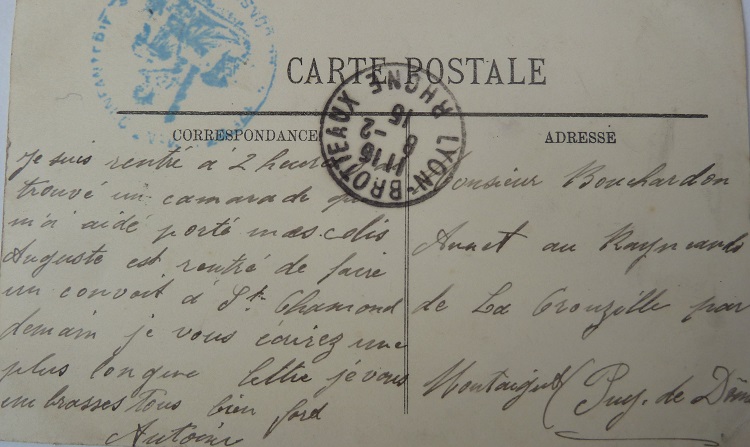 CARTE POSTALE
CORRESPONDANCE
ADRESSE
LYON-BROTTEAUX
RHONE
1115
8-2
15
Je suis rentré à 2 heures
trouvé un camarade qui
m'a aidé porté mes colis
Auguste est rentré de faire
un convoit à St. Chamond
demain je vous écrirez une
plus longue lettre je vous
embrasses tous bien fort
Antoine
Monsieur Bouchardon
Annet au Raynauds
de La Crouzille par
Montaigut (Puy-de-Dôme